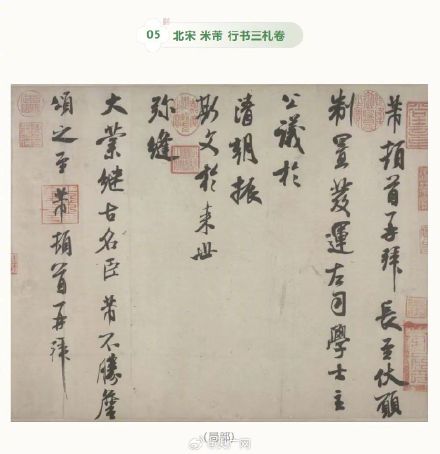 05 北宋 米芾 行书三札卷
芾頓首再拜 長至伏願
制置發運左司學士主
公議於
清朝振
斯文於來世
弥縫
大業継古名臣芾不勝詹
頌之至芾頓首再拜
(局部)